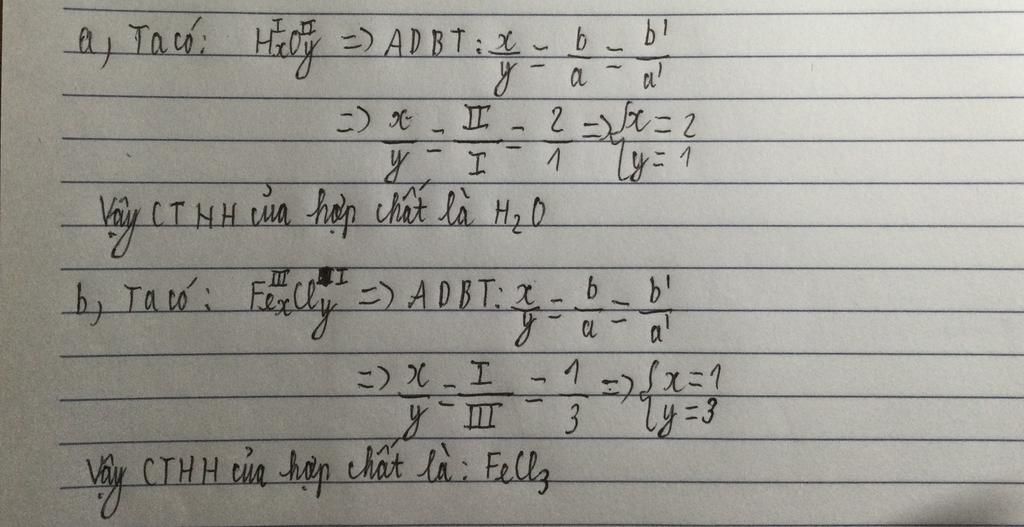 a, Ta có: HₓᴵOᵧᴵᴵ => ADBT: x/y = b/a = b'/a'
=> x/y = II/I = 2/1 => { x = 2 y = 1
Vậy CTHH của hợp chất là H₂O
b, Ta có: FeₓᴵᴵᴵClᵧᴵ => ADBT: x/y = b/a = b'/a'
=> x/y = I/III = 1/3 => { x = 1 y = 3
Vậy CTHH của hợp chất là: FeCl₃